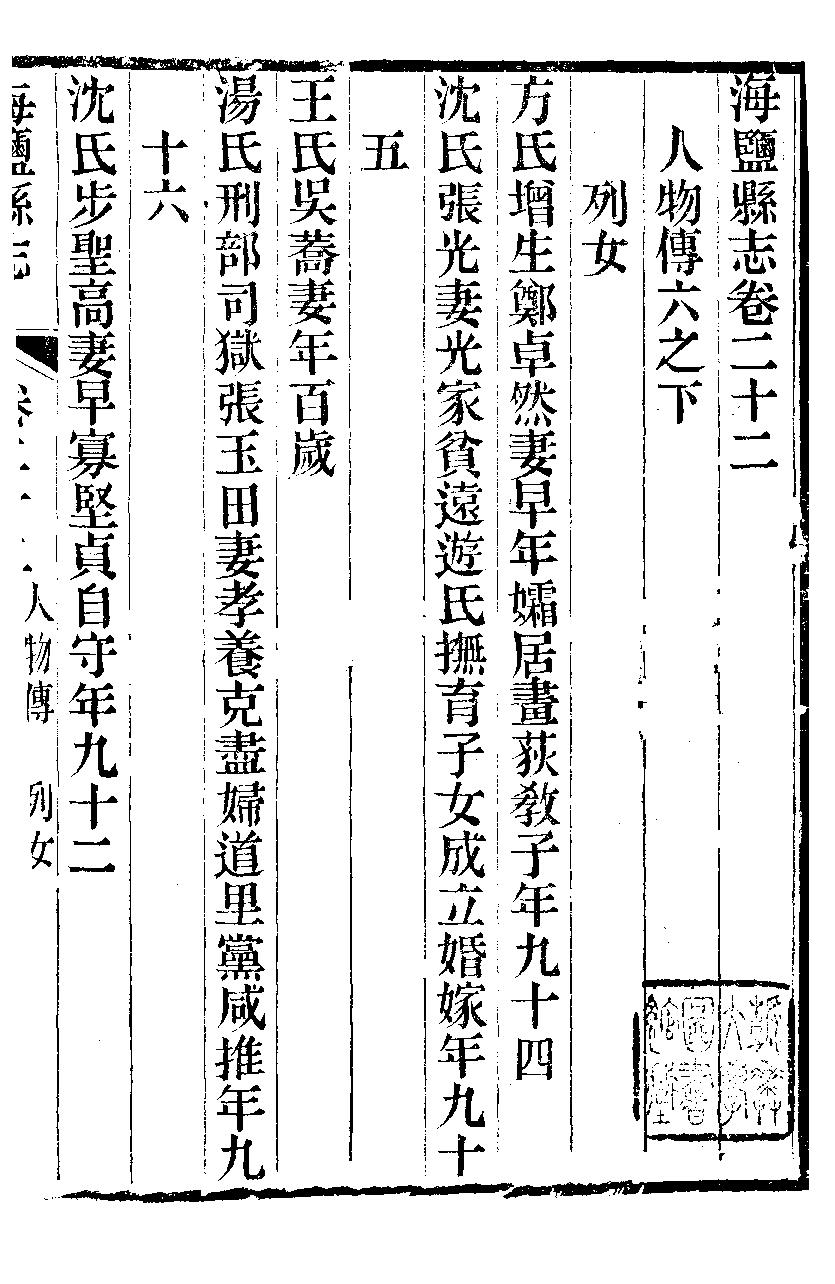 海鹽縣志卷二十二
人物傳六之下
列女
方氏增生鄭卓然妻早年孀居畫荻教子年九十四
沈氏張光妻光家貧遠遊氏撫育子女成立婚嫁年九十
五
王氏吳蕎妻年百歲
湯氏刑部司獄張玉田妻孝養克盡婦道里黨咸推年九
十六
沈氏步聖高妻早寡堅貞自守年九十二
海鹽縣志 卷二十二 人物傳 列女